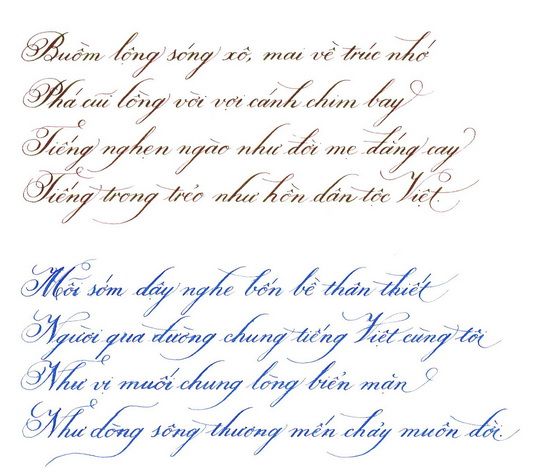 Buồm lộng sóng xô, mai về trúc nhớ
Phá cũi lồng vời vợi cánh chim bay
Tiếng nghẹn ngào như đời mẹ đắng cay
Tiếng trong trẻo như hồn dân tộc Việt.
Mỗi sớm dậy nghe bốn bề thân thiết
Người qua đường chung tiếng Việt cùng tôi
Như vị muối chung lòng biển mặn
Như dòng sông thương mến chảy muôn đời.